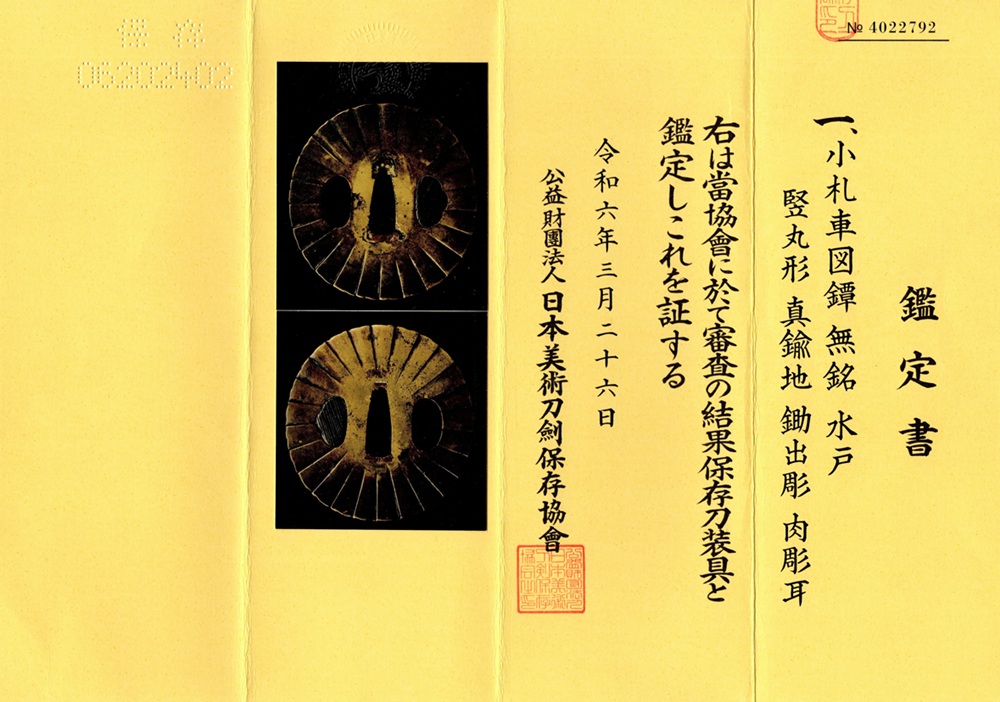 鑑定書
№ 4022792
一、小札車図鐔 無銘 水戸
竪丸形 真鍮地 鋤出彫 肉彫耳
右は當協會に於て審査の結果保存刀装具と
鑑定しこれを証する
令和六年三月二十六日
公益財團法人 日本美術刀劍保存協會
保存
06202402